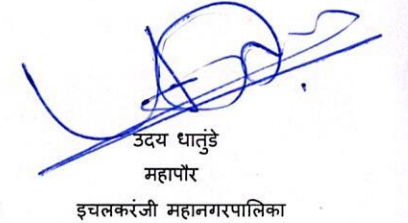 उदय धातुंडे
महापौर
इचलकरंजी महानगरपालिका